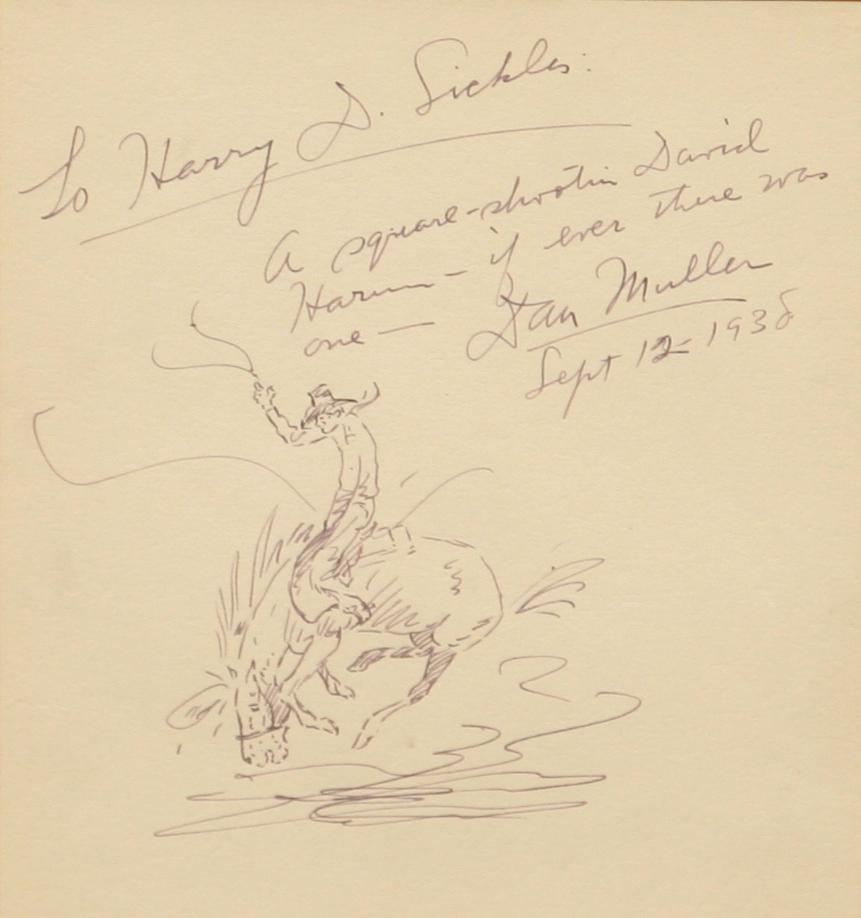 To Harry D. Sickles:
A square-shootin David
Harum - if ever there was
one -
Dan Muller
Sept 12-1938